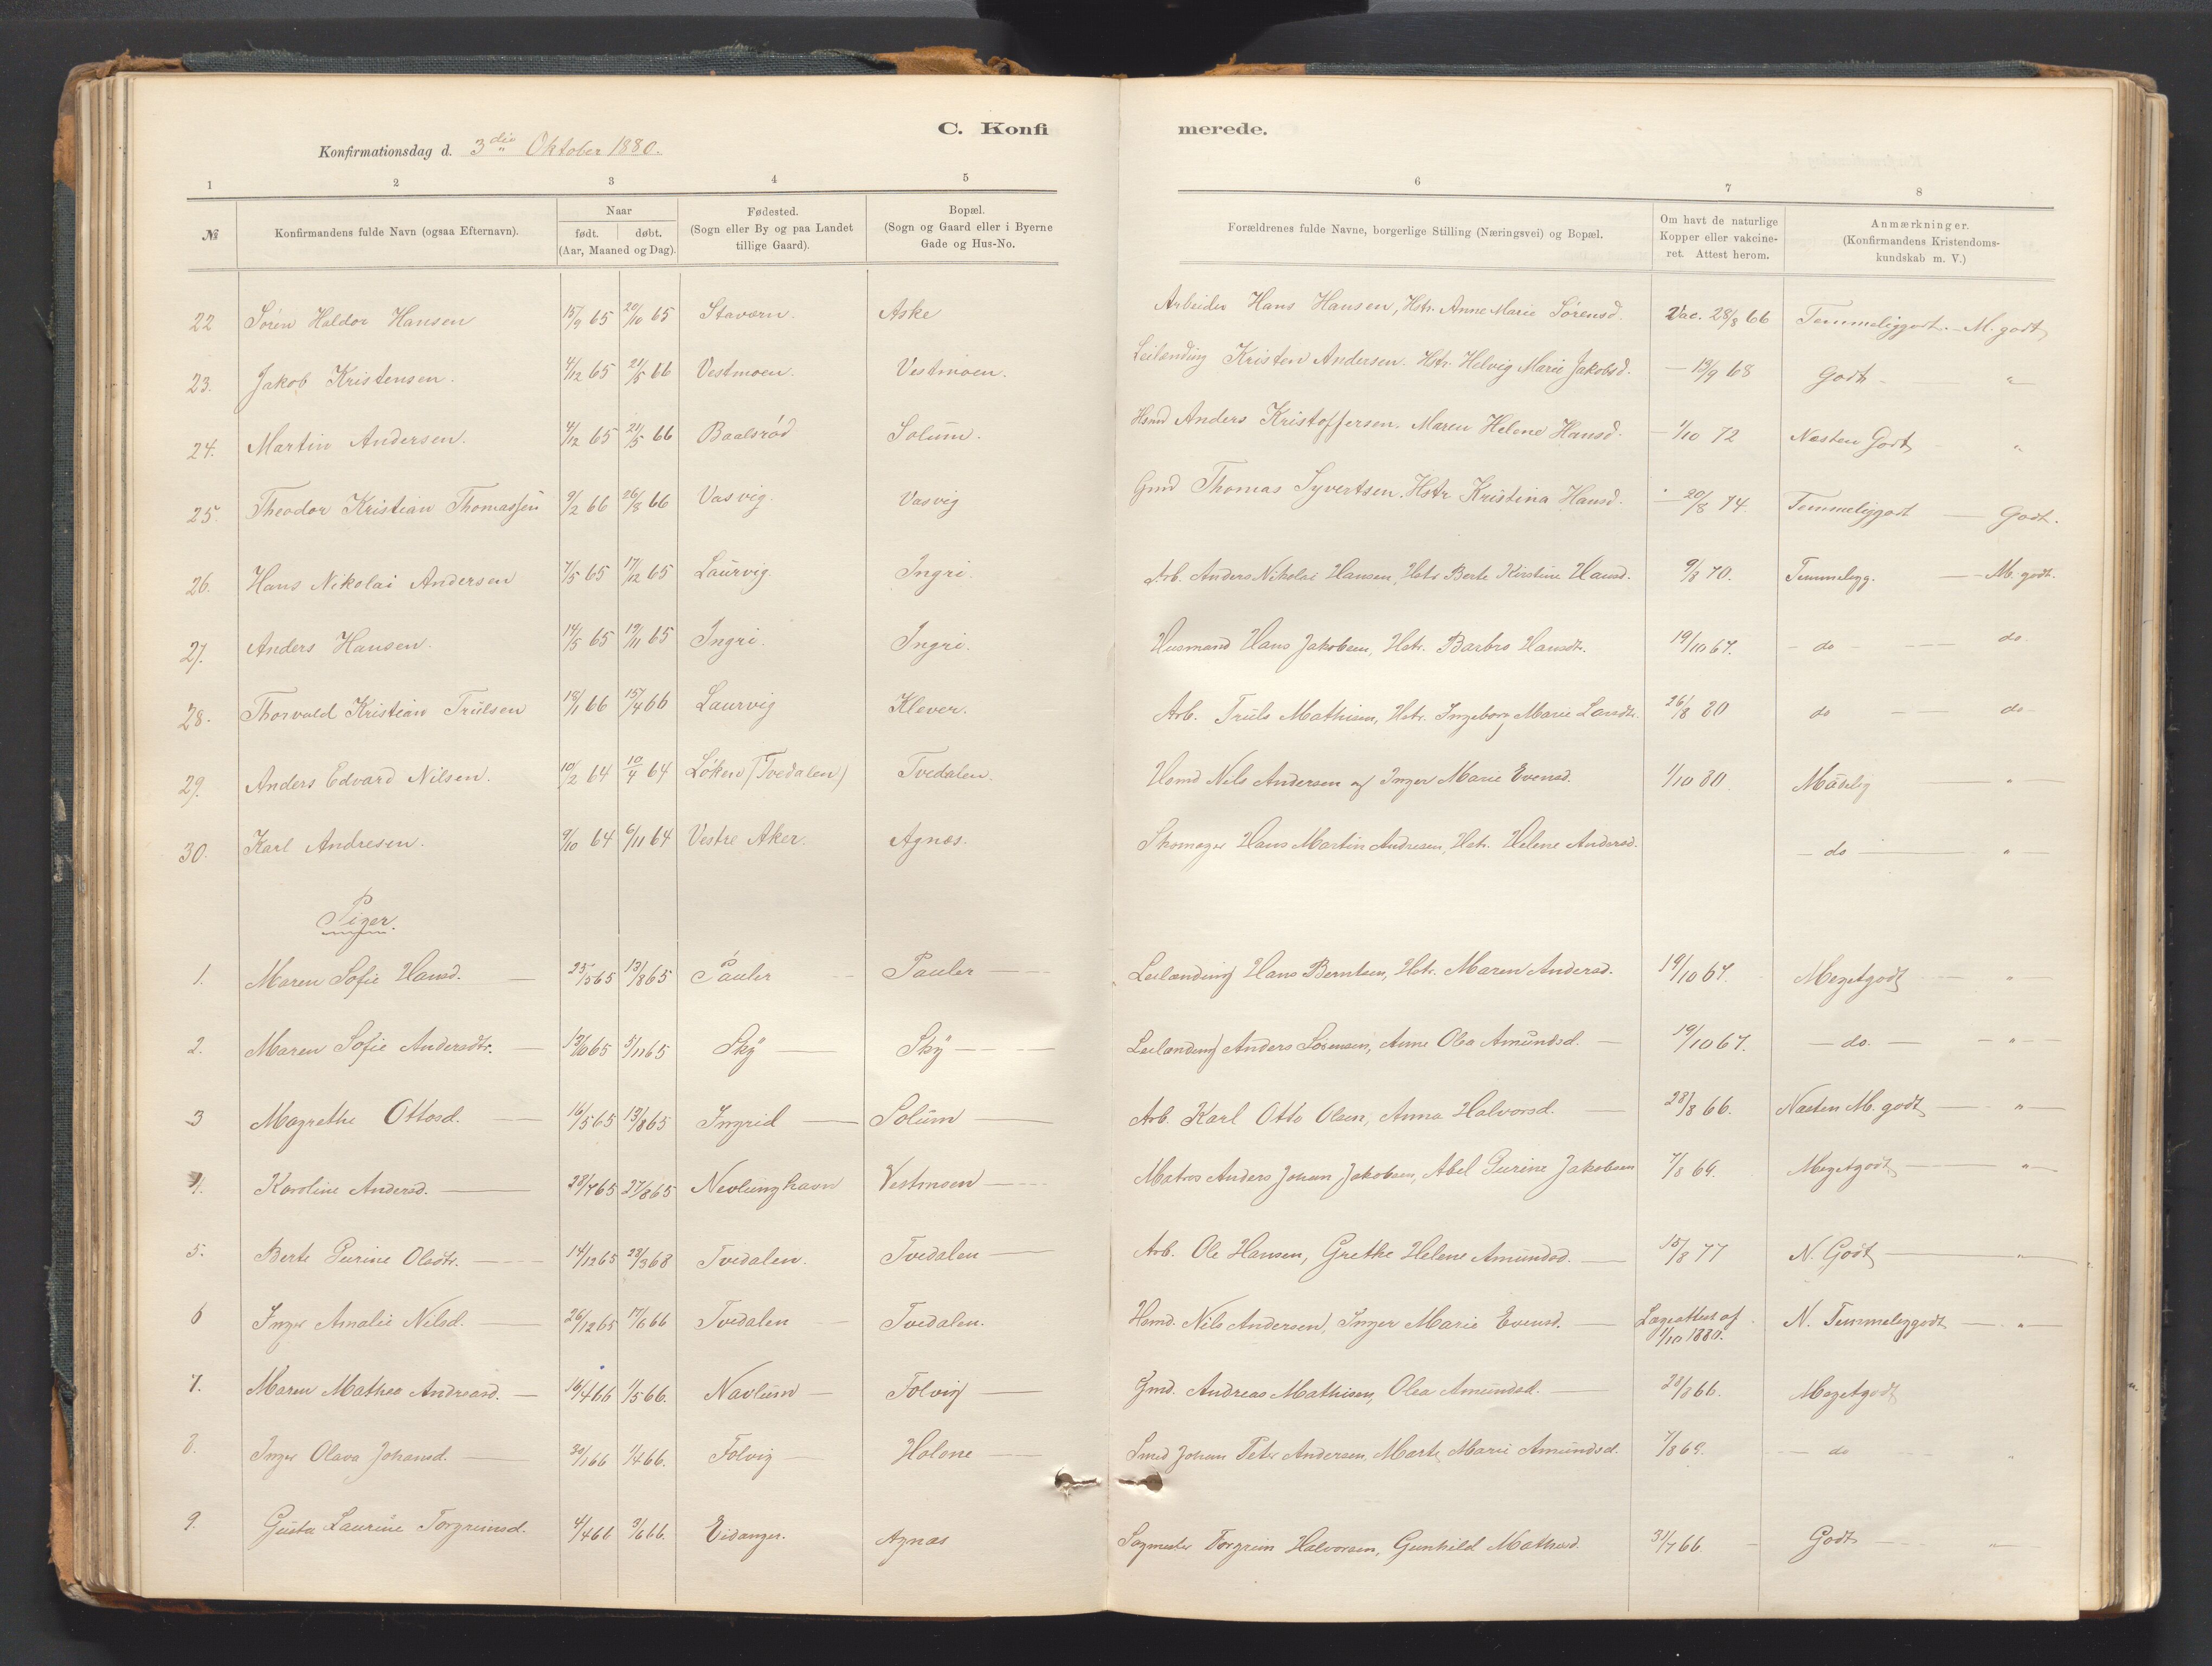 C. Konfi
merede.
Konfirmationsdag d. 3die Oktober 1880.
1 2 3 4 5 6 7 8
№ Konfirmandens fulde Navn (ogsaa Efternavn). Naar født. døbt. (Aar, Maaned og Dag). Fødested. (Sogn eller By og paa Landet tillige Gaard). Bopæl. (Sogn og Gaard eller i Byerne Gade og Hus-No. Forældrenes fulde Navne, borgerlige Stilling (Næringsvei) og Bopæl. Om havt de naturlige Kopper eller vakcineret. Attest herom. Anmærkninger. (Konfirmandens Kristendomskundskab m. V.)
22 Søren Haldor Hansen 15/9 65 20/10 65 Stavœrn. Aske Arbeider Hans Hansen, Hstr. Anne Marie Sørensd. Vac. 28/8 66 Temmeliggodt. - M. godt
23. Jakob Kristensen. 4/12 65 21/5 66 Vestmoen. Vestmoen. Leilænding Kristen Andersen. Hstr. Helvig Marie Jakobsd. - 19/9 68 Godt - "
24. Martin Andersen. 4/12 65 21/5 66 Baalsrød Solum. Hsmd Anders Kristoffersen. Maren Helene Hansd. - 1/10 72 Næsten Godt "
25. Theodor Kristian Thomassen 9/2 66 26/8 66 Vasvig. Vasvig Gmd Thomas Syvertsen. Hstr Kristina Hansd. - 20/8 74. Temmeliggodt - Godt.
26. Hans Nikolai Andersen 7/5 65 17/12 65 Laurvig Ingri Arb. Anders Nikolai Hansen, Hstr Berte Kirstine Hansd. 9/8 70. Temmeligg. - M. godt.
27. Anders Hansen. 14/5 65 19/11 65 Ingri. Ingri. Husmand Hans Jakobsen, Hstr. Barbro Hansdtr. 19/10 67. - do - - do
28. Thorvald Kristian Trulsen 18/1 66 15/4 66 Laurvig Klever. Arb. Truls Mathisen, Hstr. Ingeborg Marie Larsdtr. 26/8 80 do - - do -
29. Anders Edvard Nilsen. 10/2 64 10/4 64 Løken (Tvedalen) Tvedalen. Hsmd Nils Andersen og Inger Marie Evensd. 1/10 80 Mådelig "
30. Karl Andresen. 9/10 64 6/11 64 Vestre Aker. Agnæs. Skomager Hans Martin Andresen, Hstr. Helene Andersd. - do - "
Piger.
1. Maren Sofie Hansd. 25/5 65 13/8 65 Pauler Pauler - Leilænding Hans Berntsen, Hstr. Maren Andersd. 19/10 67. Megetgodt "
2. Maren Sofie Andersdtr. 13/10 65 5/11 65 Sky - Sky - Leilænding Anders Sørensen, Anne Olea Amundsd. - 19/10 67. - do. - "
3 Magrethe Ottosd. - 16/5 65 13/8 65 Ingrid - Solum - Arb. Karl Otto Olsen, Anna Halvorsd. - 28/8 66. Næsten M. godt - "
4. Karoline Andersd. - 28/7 65 27/8 65 Nevlunghavn Vestmoen - Matros Anders Johan Jakobsen, Abel Gurine Jakobsen 7/8 69. Megetgodt - "
5. Berte Gurine Olsdtr. - 14/12 65 23/3 68 Tvedalen. Tvedalen - Arb. Ole Hansen, Grethe Helene Amundsd. - 15/8 77 N. Godt - "
6 Inger Amalie Nilsd. - 26/12 65 17/6 66 Tvedalen - Tvedalen. Hsmd. Nils Andersen, Inger Marie Evensd. - Lægeattest af 1/10 1880. N. Temmeliggodt - "
7. Maren Mathea Andreasd. - 16/4 66 1/5 66. Navlum - Tolvig - Gmd. Andreas Mathisen, Olea Amundsd. - 28/8 66. Megetgodt
8. Inger Olava Johansd. - 30/1 66 1/4 66. Tolvig - Holone - Smed Johan Peter Andersen, Marte Marie Amundsd. 7/8 69. - do "
9. Gusta Laurine Torgrimsd. 4/4 66 3/6 66. Eidanger. Agnæs Sagmester Torgrim Halvorsen, Gunhild Mathisd. 31/7 66. - Godt - "